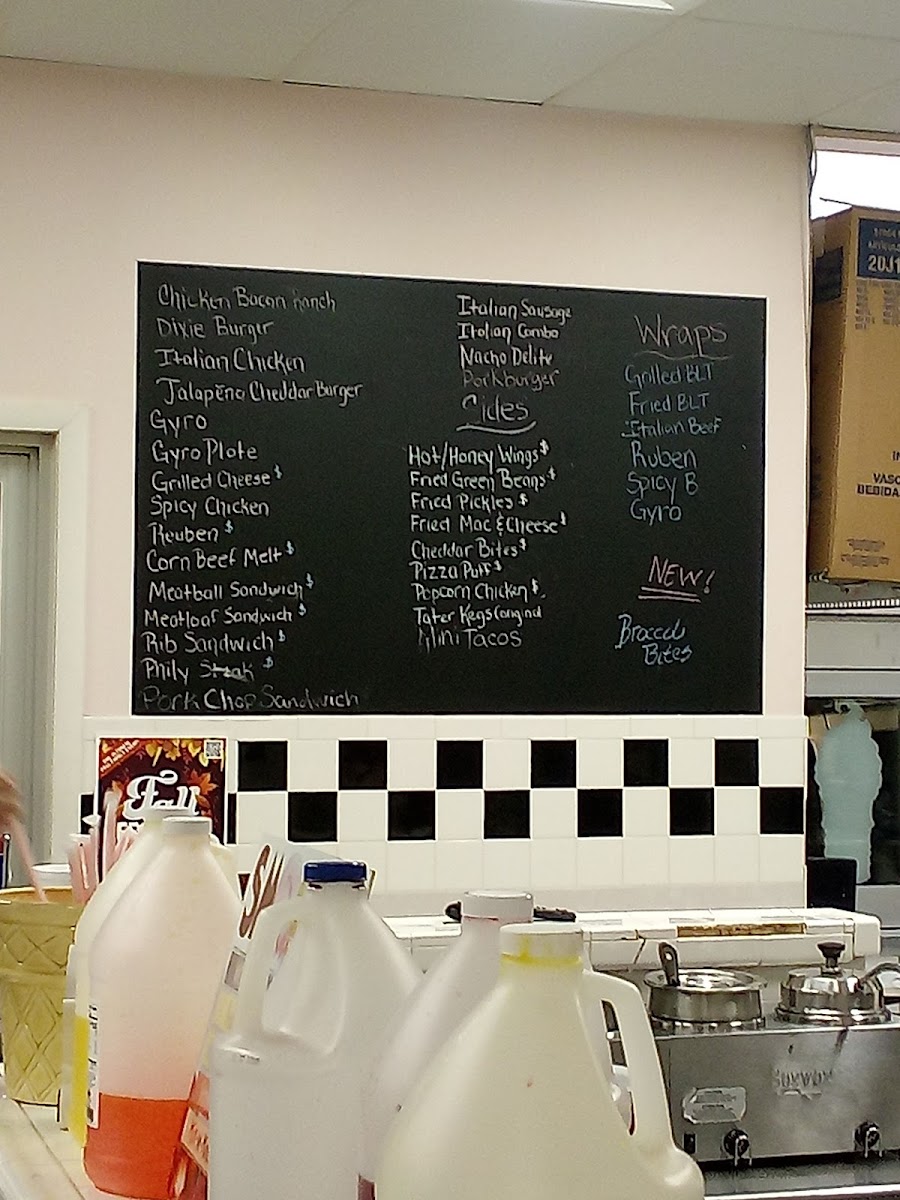 Chicken Bacon Ranch
Dixie Burger
Italian Chicken
Jalapeño Cheddar Burger
Gyro
Gyro Plate
Grilled Cheese $
Spicy Chicken
Reuben $
Corn Beef Melt $
Meatball Sandwich $
Meatloaf Sandwich $
Rib Sandwich $
Phily Steak $
Pork Chop Sandwich
Italian Sausage
Italian Combo
Nacho Delite
Porkburger
Sides
Hot/Honey Wings $
Fried Green Beans $
Fried Pickles $
Fried Mac & Cheese $
Cheddar Bites $
Pizza Puff $
Popcorn Chicken $
Tater Kegs
Mini Tacos
Wraps
Grilled BLT
Fried BLT
Italian Beef
Ruben
Spicy B
Gyro
NEW!
Broccoli
Bites
Fall
20J1
VASO
BEBIDA